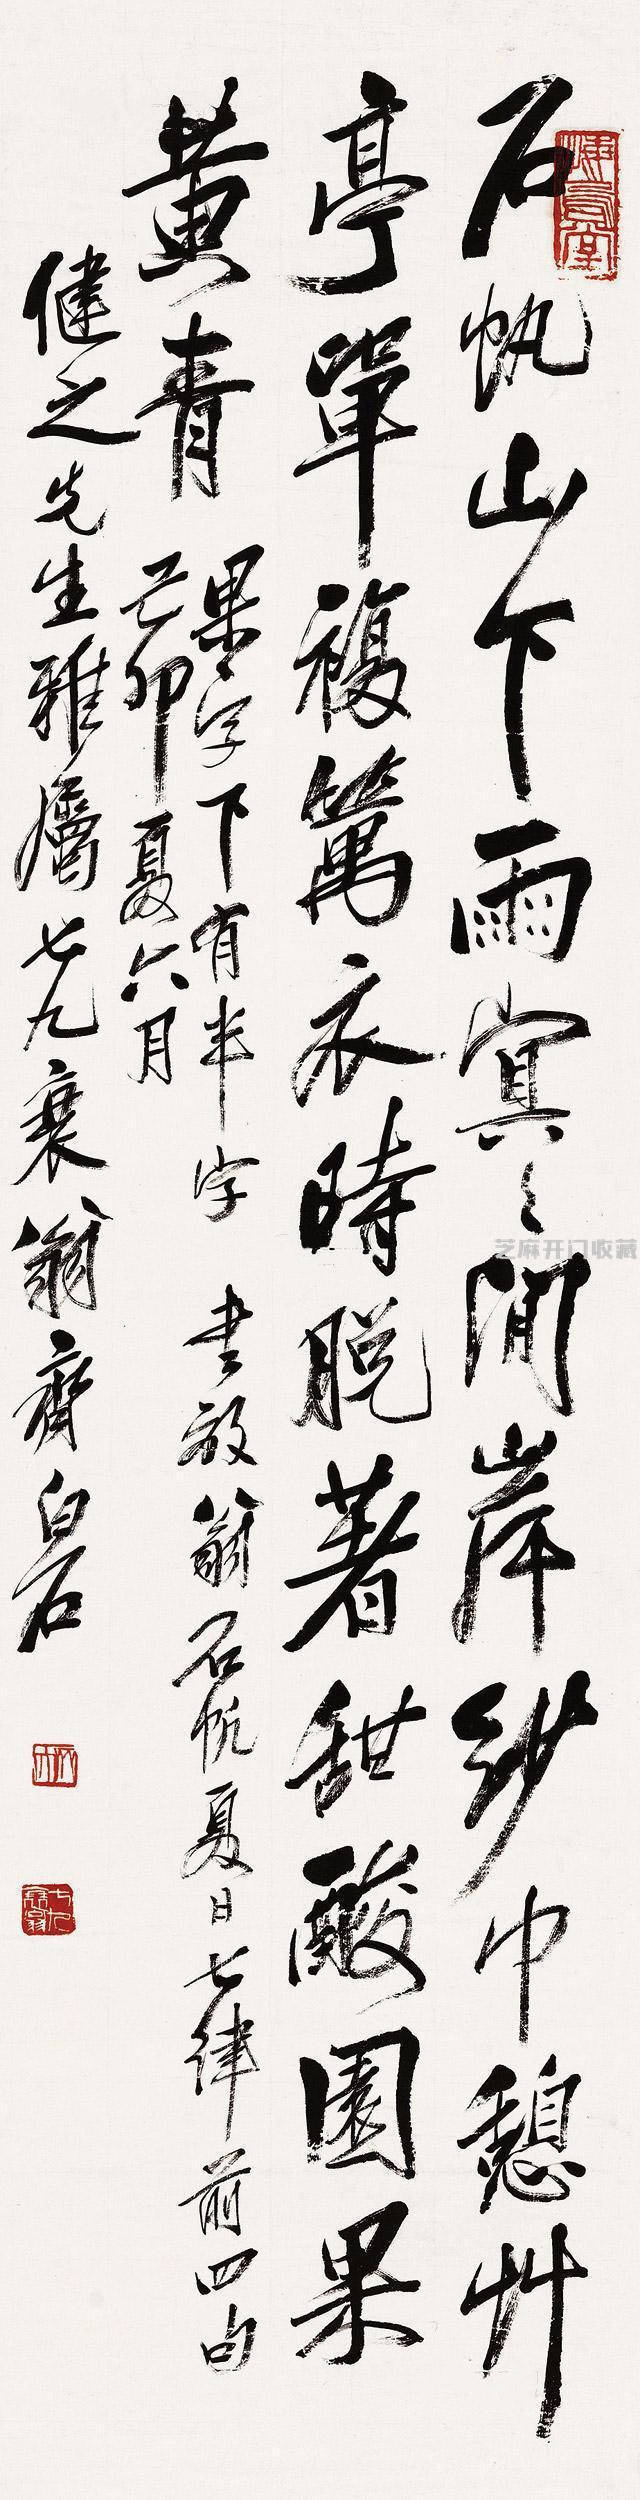 石帆山下雨冥〻閒岸紗巾憩艸
亭單複衣時脱著甜酸園果
黄青
果字下有半字 書放翁石帆夏日七律前四句
己卯夏六月
健之先生雅屬七九衰翁齊白石
悔烏堂
芝麻开门收藏